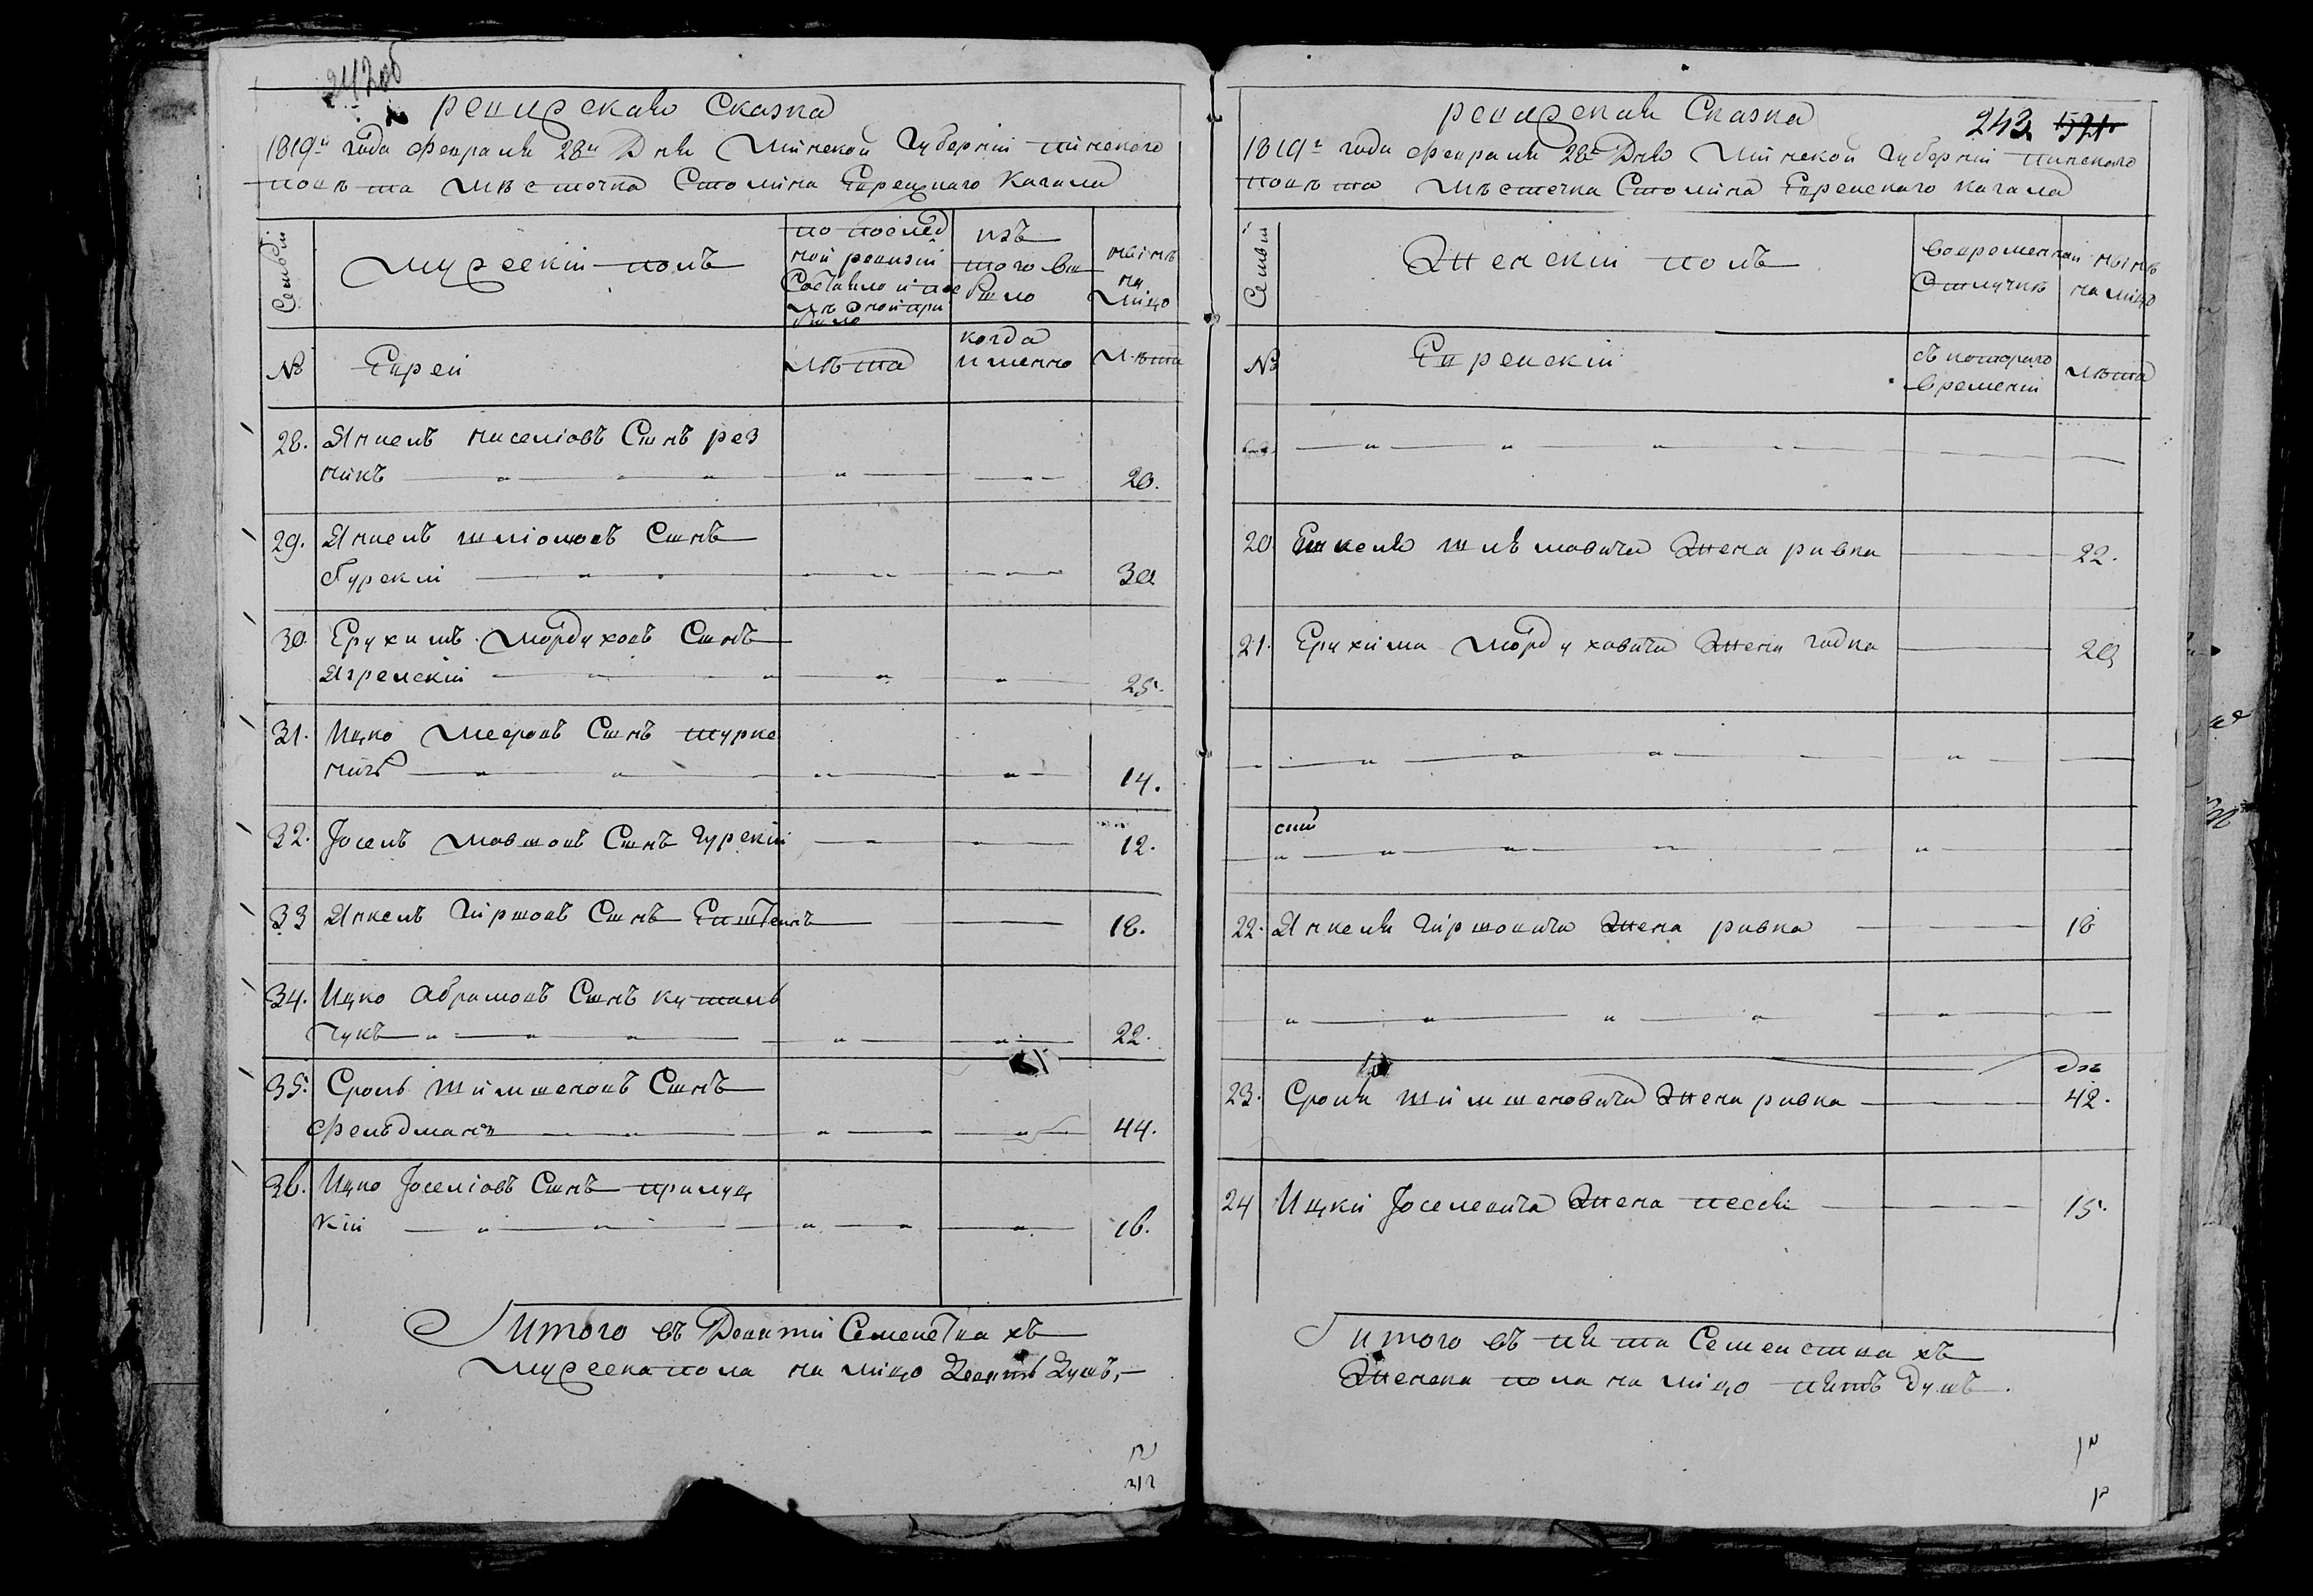 242об
ревизская Сказка
1819го года февраля 28го Дня Минской Губерніи пинского
повѣта мѣстечка Столина Еврейского Кагала
Семьи
мужескій полъ
по послед
ней ревизіи
Состояло и пос
лѣ оной при
было
изъ
того вы
было
нынѣ
на
лицо
№
Евреи
лѣта
когда
именно
лѣта
28. Янкель киселіовъ Сынъ рез
никъ 20.
29. Янкель шліомовъ Сынъ
Гурскій 30
30. Ерухимъ Мордуховъ Сынъ
Ягремскій 25.
31. Ицко Мееровъ Сынъ турке
ничъ 14.
32. Іосель Мовшовъ Сынъ Гурскій 12.
33 Янкель Гиршовъ Сынъ Епштеинъ 18.
34. Ицко Абрамовъ Сынъ куталь
чукъ 22.
35. Сроль Шимшеновъ Сынъ
Фельдманъ 44.
36. Ицко Іоселіовъ Сынъ прилуц
кій 16.
Итого въ Девяти Семействахъ
мужеска пола на лицо Девять Душъ,
243 571
ревизская Сказка
1819го года февраля 28го Дня Минской Губерніи пинского
повѣта мѣстечка Столина Еврейского кагала
Семьи
Женскій полъ
во временной
Отлучкѣ
нынѣ
на лицо
№
Еврейскій
съ которого
времени
лѣта
20 Янкеля шліомовича Жена ривка 22.
21. Ерухима Мордуховича Жена годка 20
22. Янкеля Гиршовича Жена ривка 18
23. Сроля Шимшеновича Жена ривка 42.
24 Ицки Іоселевича Жена песся 15.
Итого въ пяти Семействахъ
Женска пола на лицо пять душъ.